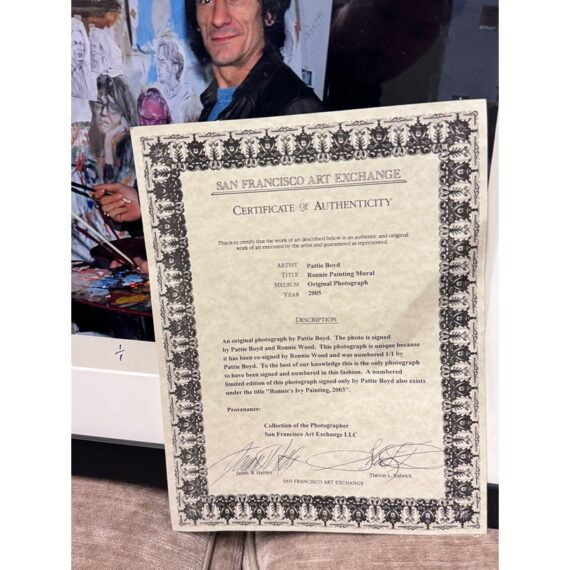 SAN FRANCISCO ART EXCHANGE
CERTIFICATE OF AUTHENTICITY
This is to certify that the work of art described below is an authentic and original
work of art executed by the artist and guaranteed as represented.
ARTIST Pattie Boyd
TITLE Ronnie Painting Mural
MEDIUM Original Photograph
YEAR 2005
DESCRIPTION
An original photograph by Pattie Boyd. The photo is signed
by Pattie Boyd and Ronnie Wood. This photograph is unique because
it has been co-signed by Ronnie Wood and was numbered 1/1 by
Pattie Boyd. To the best of our knowledge this is the only photograph
to have been signed and numbered in this fashion. A numbered
limited edition of this photograph signed only by Pattie Boyd also exists
under the title "Ronnie's Ivy Painting, 2003".
Provenance:
Collection of the Photographer
San Francisco Art Exchange LLC
James R. Hartley Theron L. Kabrich
SAN FRANCISCO ART EXCHANGE
1/1